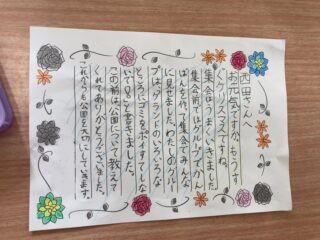 西田さんへ
お元気ですか。もうす
ぐクリスマスですね。
集会はうまくいきました
集会前にはグループでかん
ばんを作って集会でみんな
に見せました。わたしのグルー
プはベアランドのいろいろな
ところにゴミをポイすてしな
いでと書きました。
この前は公園について教えて
くれてありがとうございました。
これからも公園を大切にしていきます。